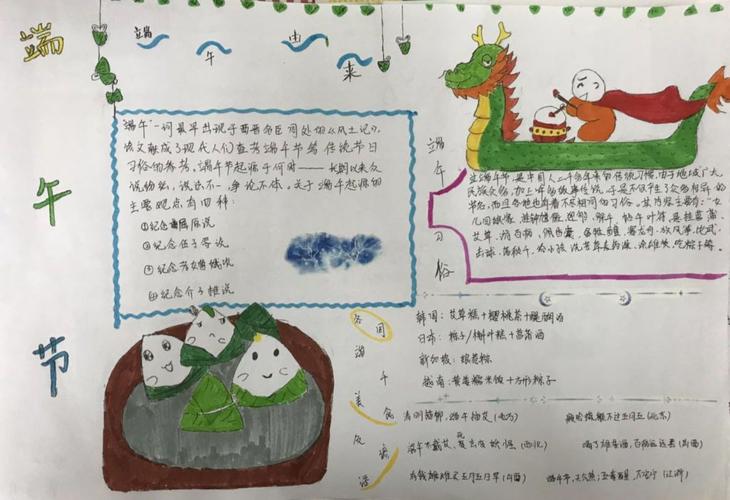 端午节
端午由来
"端午"一词最早出现于西晋名臣周处的《风土记》,
该文献成了现代人们查考端午节等传统节日
习俗的参考。端午节起源于何时——长期以来众
说纷纭,说法不一,争论不休。关于端午起源的
主要观点有四种:
①纪念屈原说
②纪念伍子胥说
③纪念孝女曹娥说
④纪念介子推说
端午习俗
过端午节,是中国人二千多年来的传统习惯,由于地域广大,
民族众多,加上许多故事传说,于是不仅产生了众多相异的
节名,而且各地也有着不尽相同的习俗。其内容主要有:"女
儿回娘家,挂钟馗像,迎鬼船、躲午,帖午叶符,悬挂菖蒲、
艾草,游百病,佩香囊,备牲醴,赛龙舟,
击球,荡秋千,给小孩涂雄黄,
吃粽子等。
各国端午美食及谚语
韩国:艾草糕+樱桃茶+醍醐汤
日本:粽子/槲叶糕+菖蒲酒
新加坡:娘惹粽
越南:黄姜糯米饭+方形粽子
清明插柳,端午插艾(地方)
癞蛤蟆躲不过五月五(北京)
端午不戴艾,死去变妖怪(西北)
喝了雄黄酒,百病远远丢(山西)
端午节,天气热;五毒醒,不安宁(江浙)